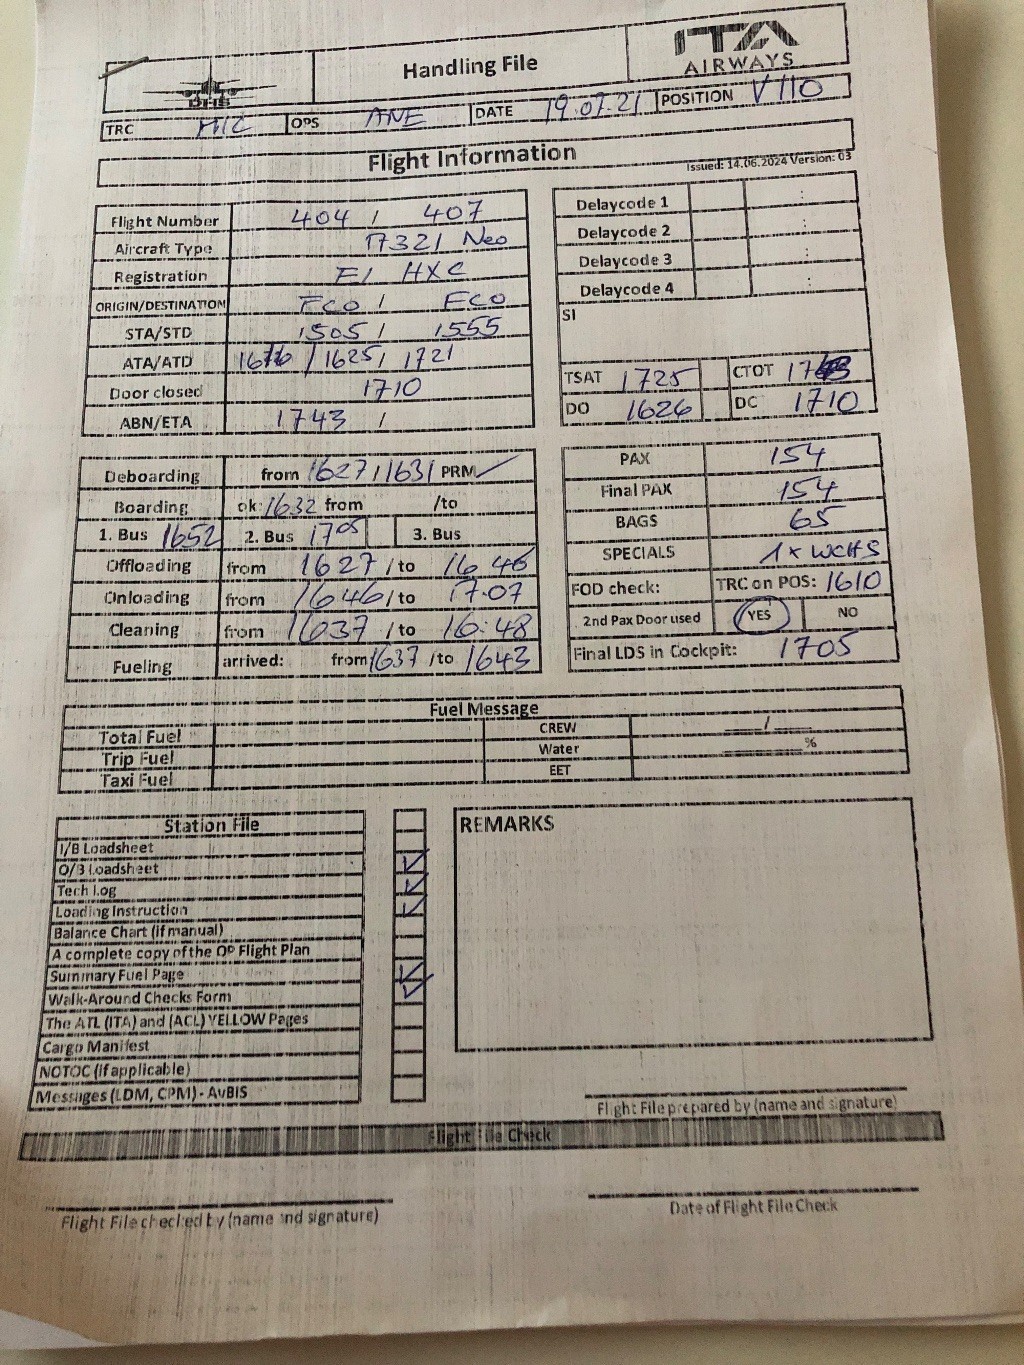 Handling File
ITA
AIRWAYS
TRC MIC OPS ANE DATE 19.07.21 POSITION V110
Flight Information
Issued: 14.06.2024 Version: 03
Flight Number 404 / 407
Aircraft Type 321 Neo
Registration EI HXC
ORIGIN/DESTINATION FCO / FCO
STA/STD 1505 / 1555
ATA/ATD / 1625 / 1721
Door closed 1710
ABN/ETA 1743 /
Delaycode 1 :
Delaycode 2 :
Delaycode 3 :
Delaycode 4 :
SI
TSAT 1725 CTOT
DO 1626 DC 1710
Deboarding from 1627 / 1631 PRM
Boarding ok: 1632 from /to
1. Bus 1652 2. Bus 1705 3. Bus
Offloading from 1627 /to 16 46
Onloading from 1646 /to 17.07
Cleaning from 1637 /to 16:48
Fueling arrived: from 1637 /to 1643
PAX 154
Final PAX 154
BAGS 65
SPECIALS 1x WCHS
FOD check: TRC on POS: 1610
2nd Pax Door used YES NO
Final LDS in Cockpit: 1705
Fuel Message
Total Fuel CREW /
Trip Fuel Water %
Taxi Fuel EET
Station File
I/B Loadsheet
O/B Loadsheet
Tech Log
Loading Instruction
Balance Chart (if manual)
A complete copy of the OP Flight Plan
Summary Fuel Page
Walk-Around Checks Form
The ATL (ITA) and (ACL) YELLOW Pages
Cargo Manifest
NOTOC (if applicable)
Messages (LDM, CPM) - AvBIS
REMARKS
Flight File prepared by (name and signature)
Flight File Check
Flight File checked by (name and signature)
Date of Flight File Check